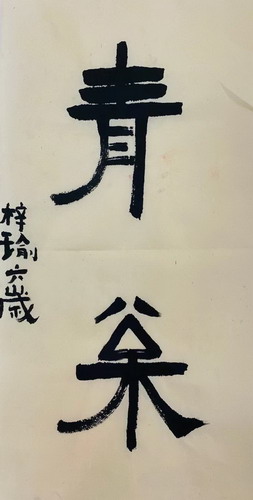 青枀
梓瑜六歲